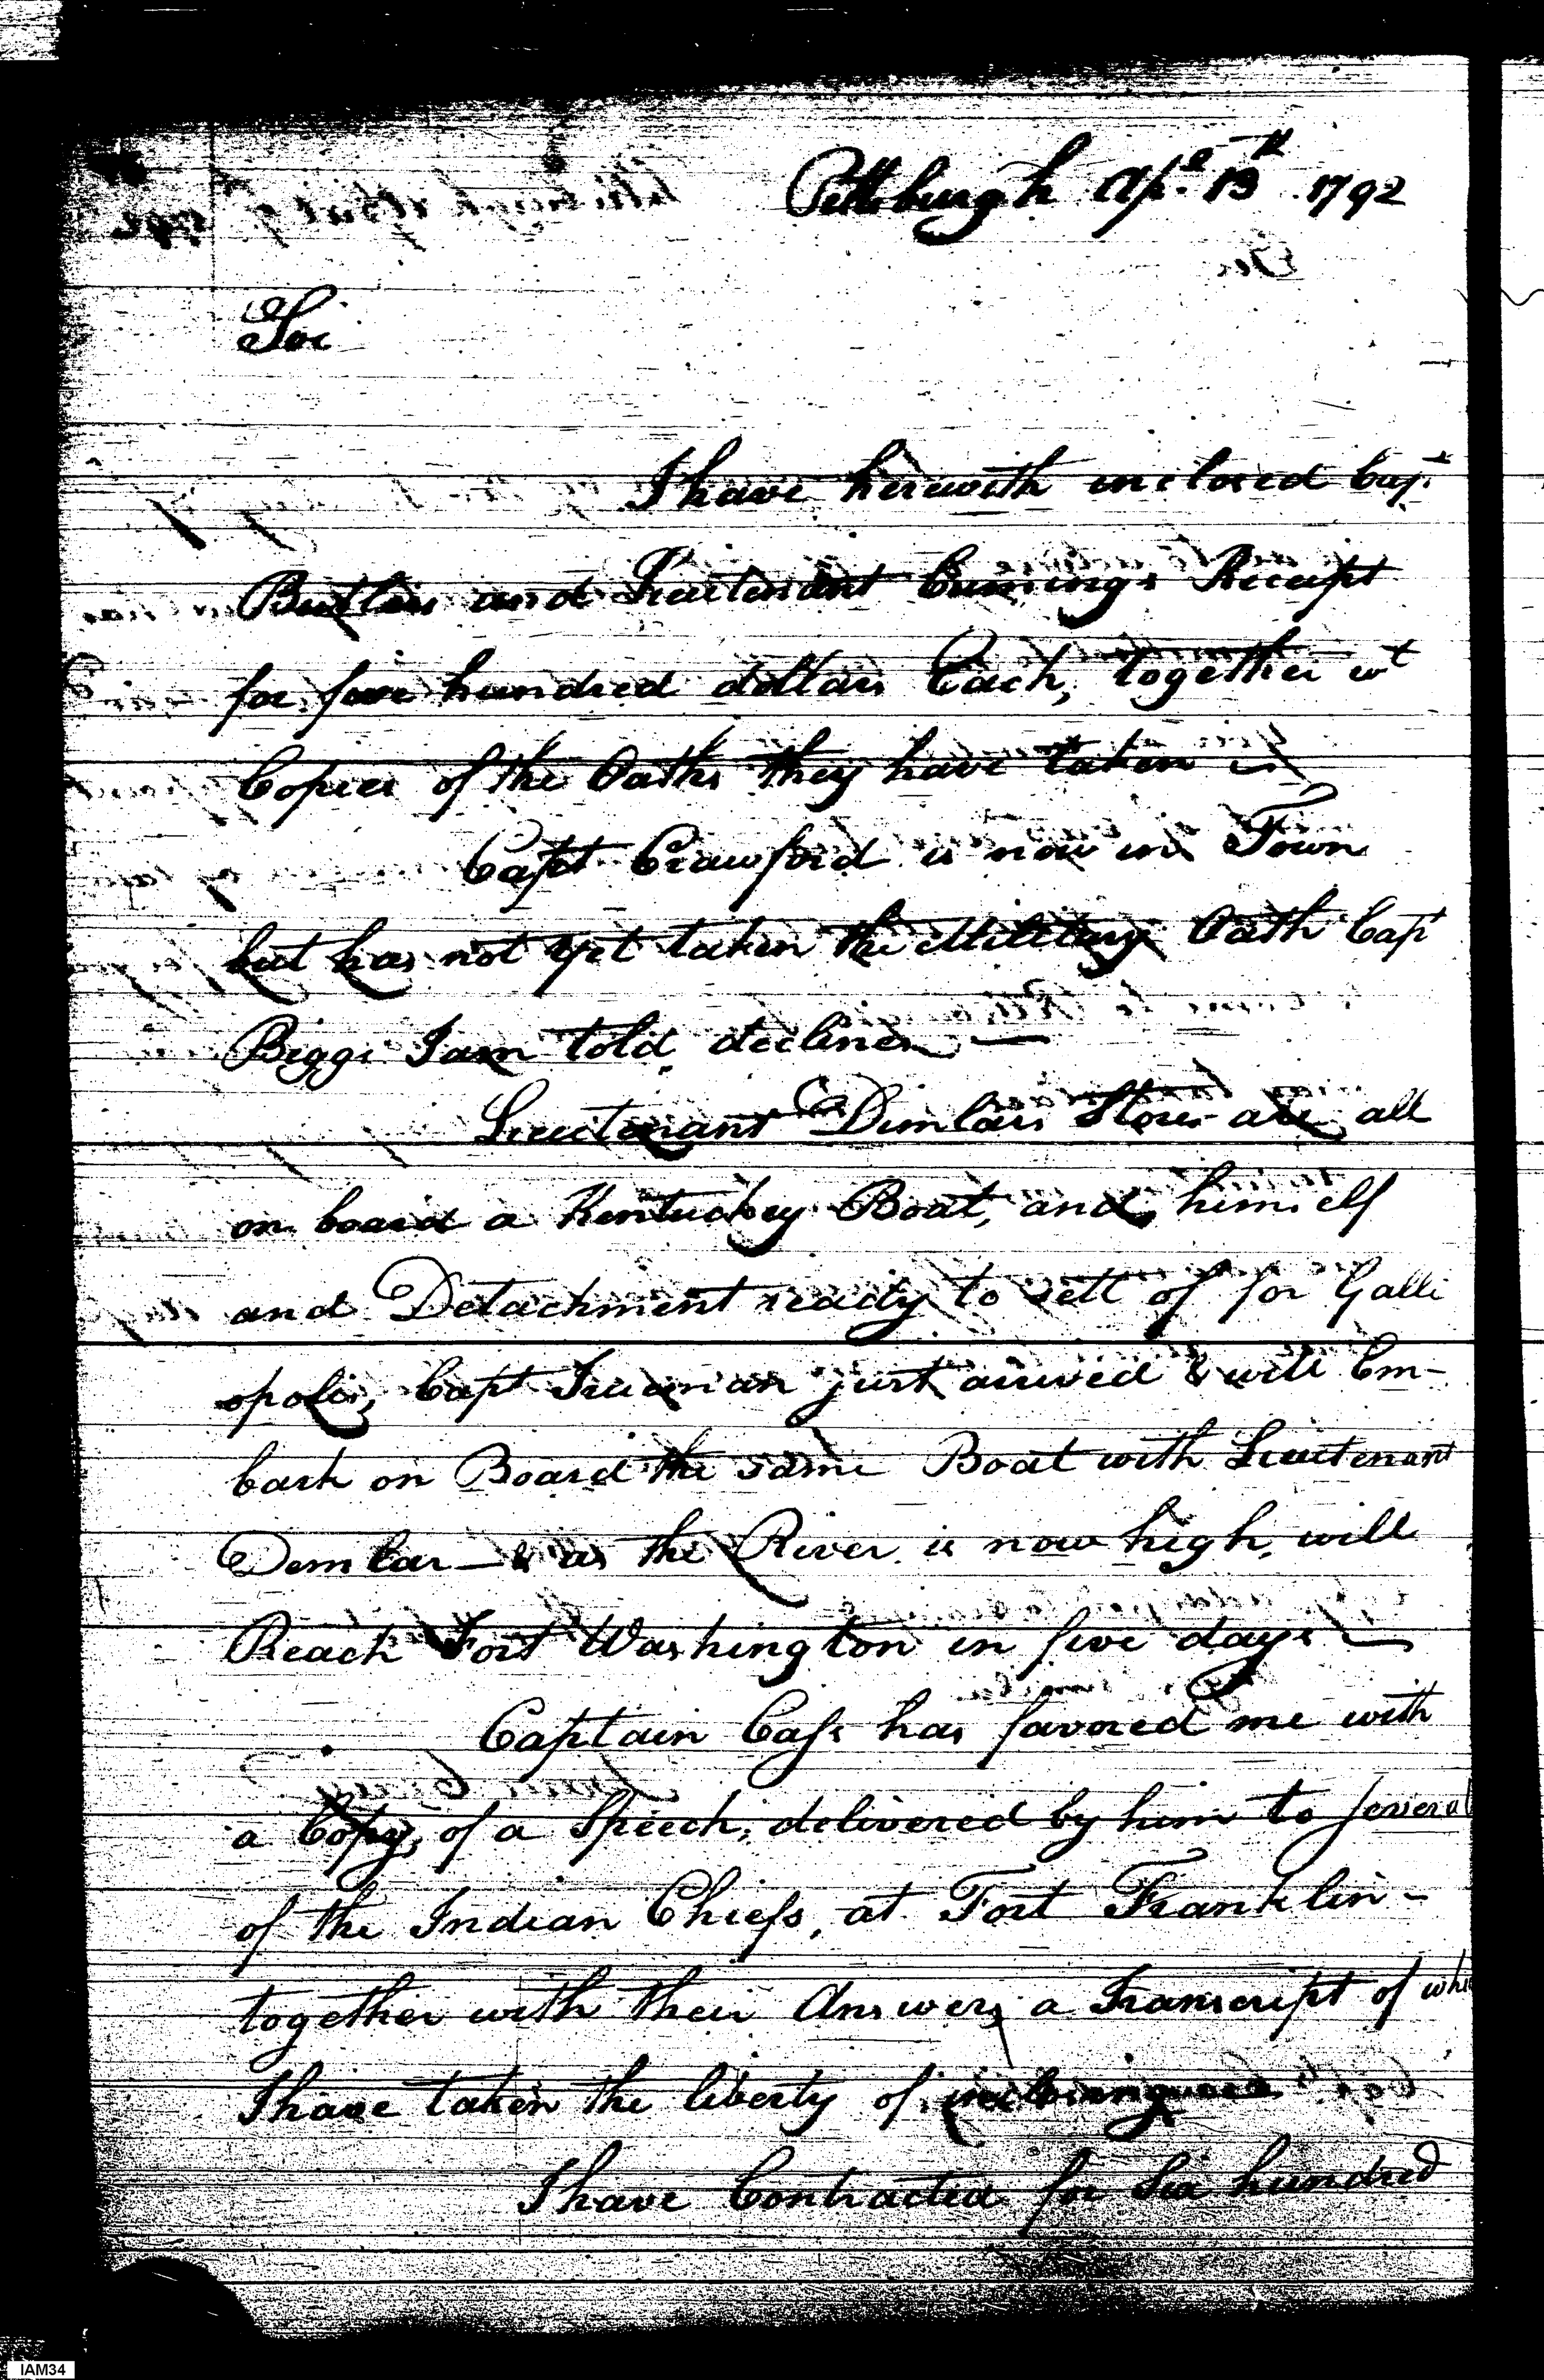 Pittsburgh Apl. 13th 1792
Sir
I have herewith inclosed Capt.
Butlers and Lieutenant Cumings Receipt
for five hundred dollars Each, together wt
Copies of the Oaths they have taken
Capt Crawford is now in Town
but has not yet taken the Military Oath Capt
Biggs I am told declines —
Lieutenant Demlars Stores are all
on board a Kentuckey Boat, and himself
and Detachment ready to sett of for Galli
opolis, Capt Trueman just arrived & will Em-
bark on Board the same Boat with Lieutenant
Demlar — & as the River is now high, will
Reach Fort Washington in five days —
Captain Cass has favored me with
a Copy, of a Speech, delivered by him to several
of the Indian Chiefs, at Fort Franklin -
together with their Answers, a Transcript of whi
I have taken the liberty of inclosing
I have Contracted for Six hundred
IAM34